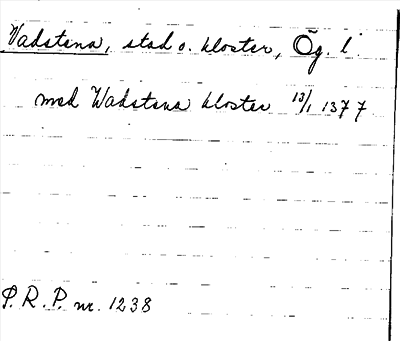 Vadstena, stad o. kloster, Ög. l.
med Wadstena kloster 13/1 1377
P. R. P. nr. 1238